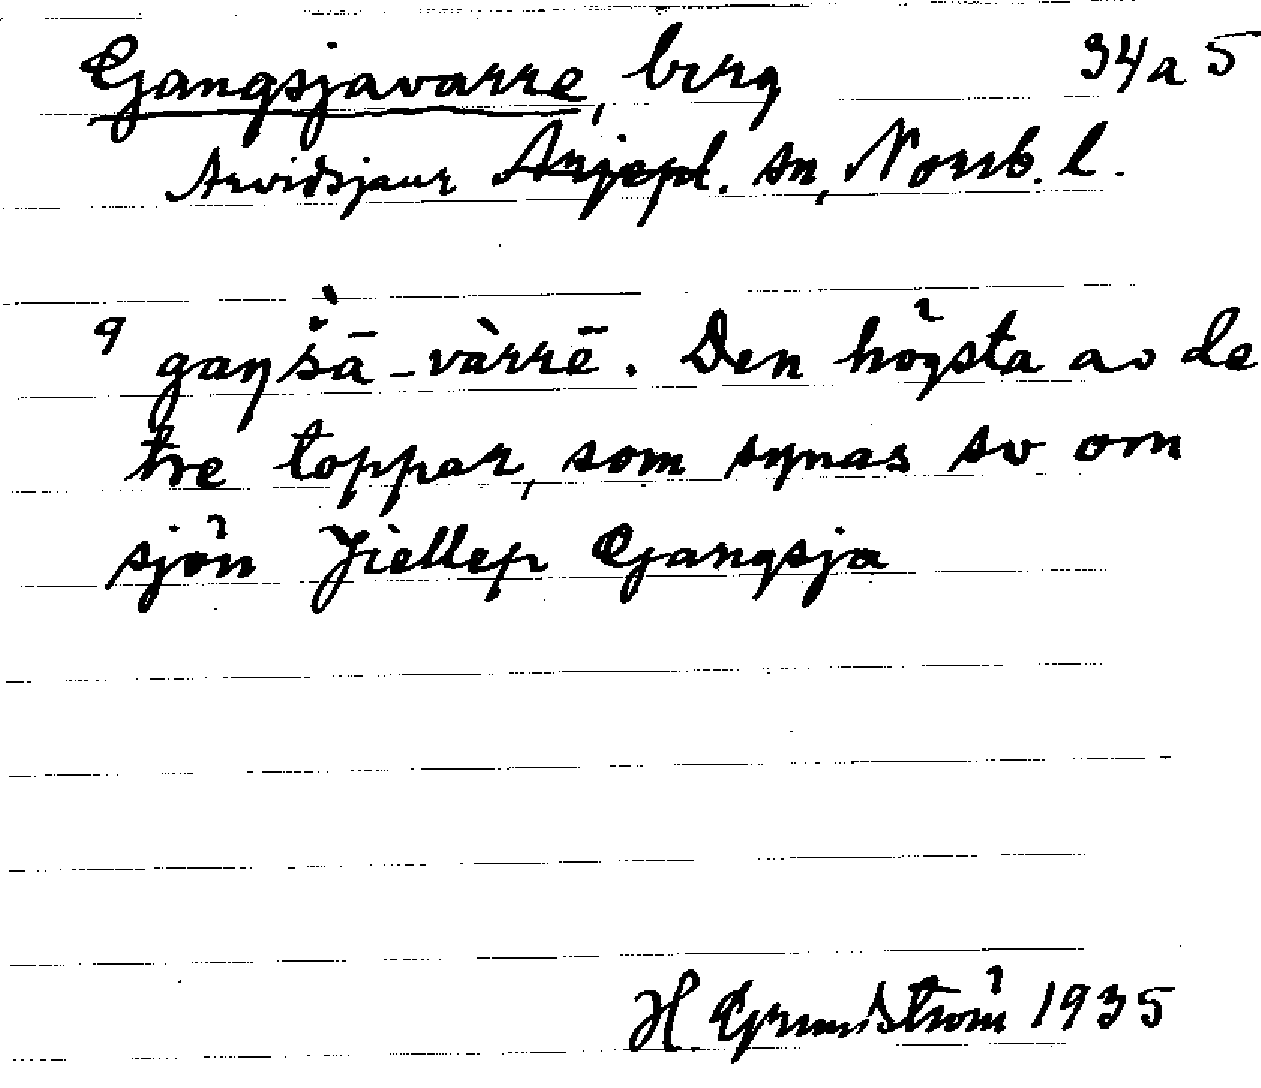 Gangsjavarre, berg 34a5
Arvidsjaur Arjepl. sn, Norrb. l.
9 gaŋšā-vàrrē. Den högsta av de
tre toppar, som synas sv om
sjön Jiellep Gangsja
H Grundström 1935